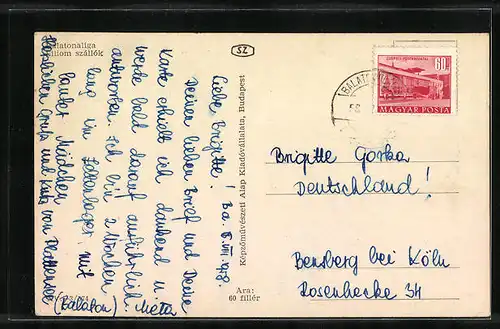 Balatonaliga
SZ
Liebe Brigitte! B.a. 8.VII.1958.
Deinen lieben Brief und Deine
Karte erhielt ich dankend u.
werde bald darauf ausführlich
antworten. Ich bin 2 Wochen
lang im Zeltlager, mit
lauter Mädchen.
Herzlichen Gruß und Kuß vom Plattensee
(Balaton) Meta
Képzőművészeti Alap Kiadóvállalata, Budapest
Ára:
60 fillér
BALATON
60f
MAGYAR POSTA
Brigitte Gorka
Deutschland!
Bensberg bei Köln
Rosenhecke 34